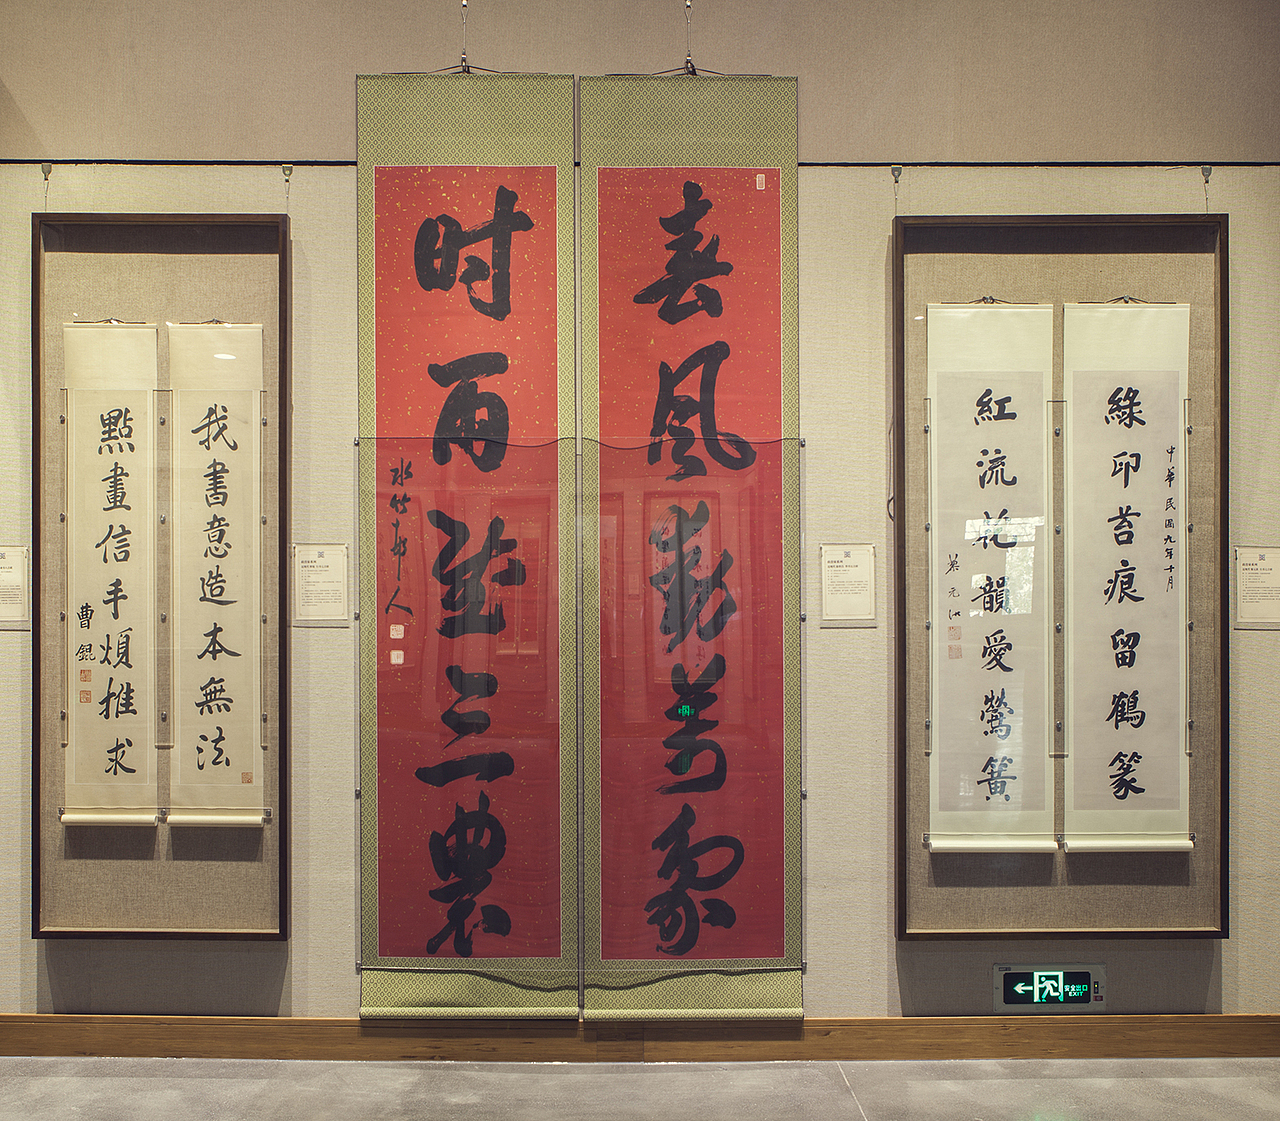 我書意造本無法
點畫信手煩推求
曹錕
春風動萬象
时雨三農
水竹邨人
綠印苔痕留鶴篆
中華民國九年十月
紅流花韻愛鶯簧
黎元洪
安全出口
EXIT